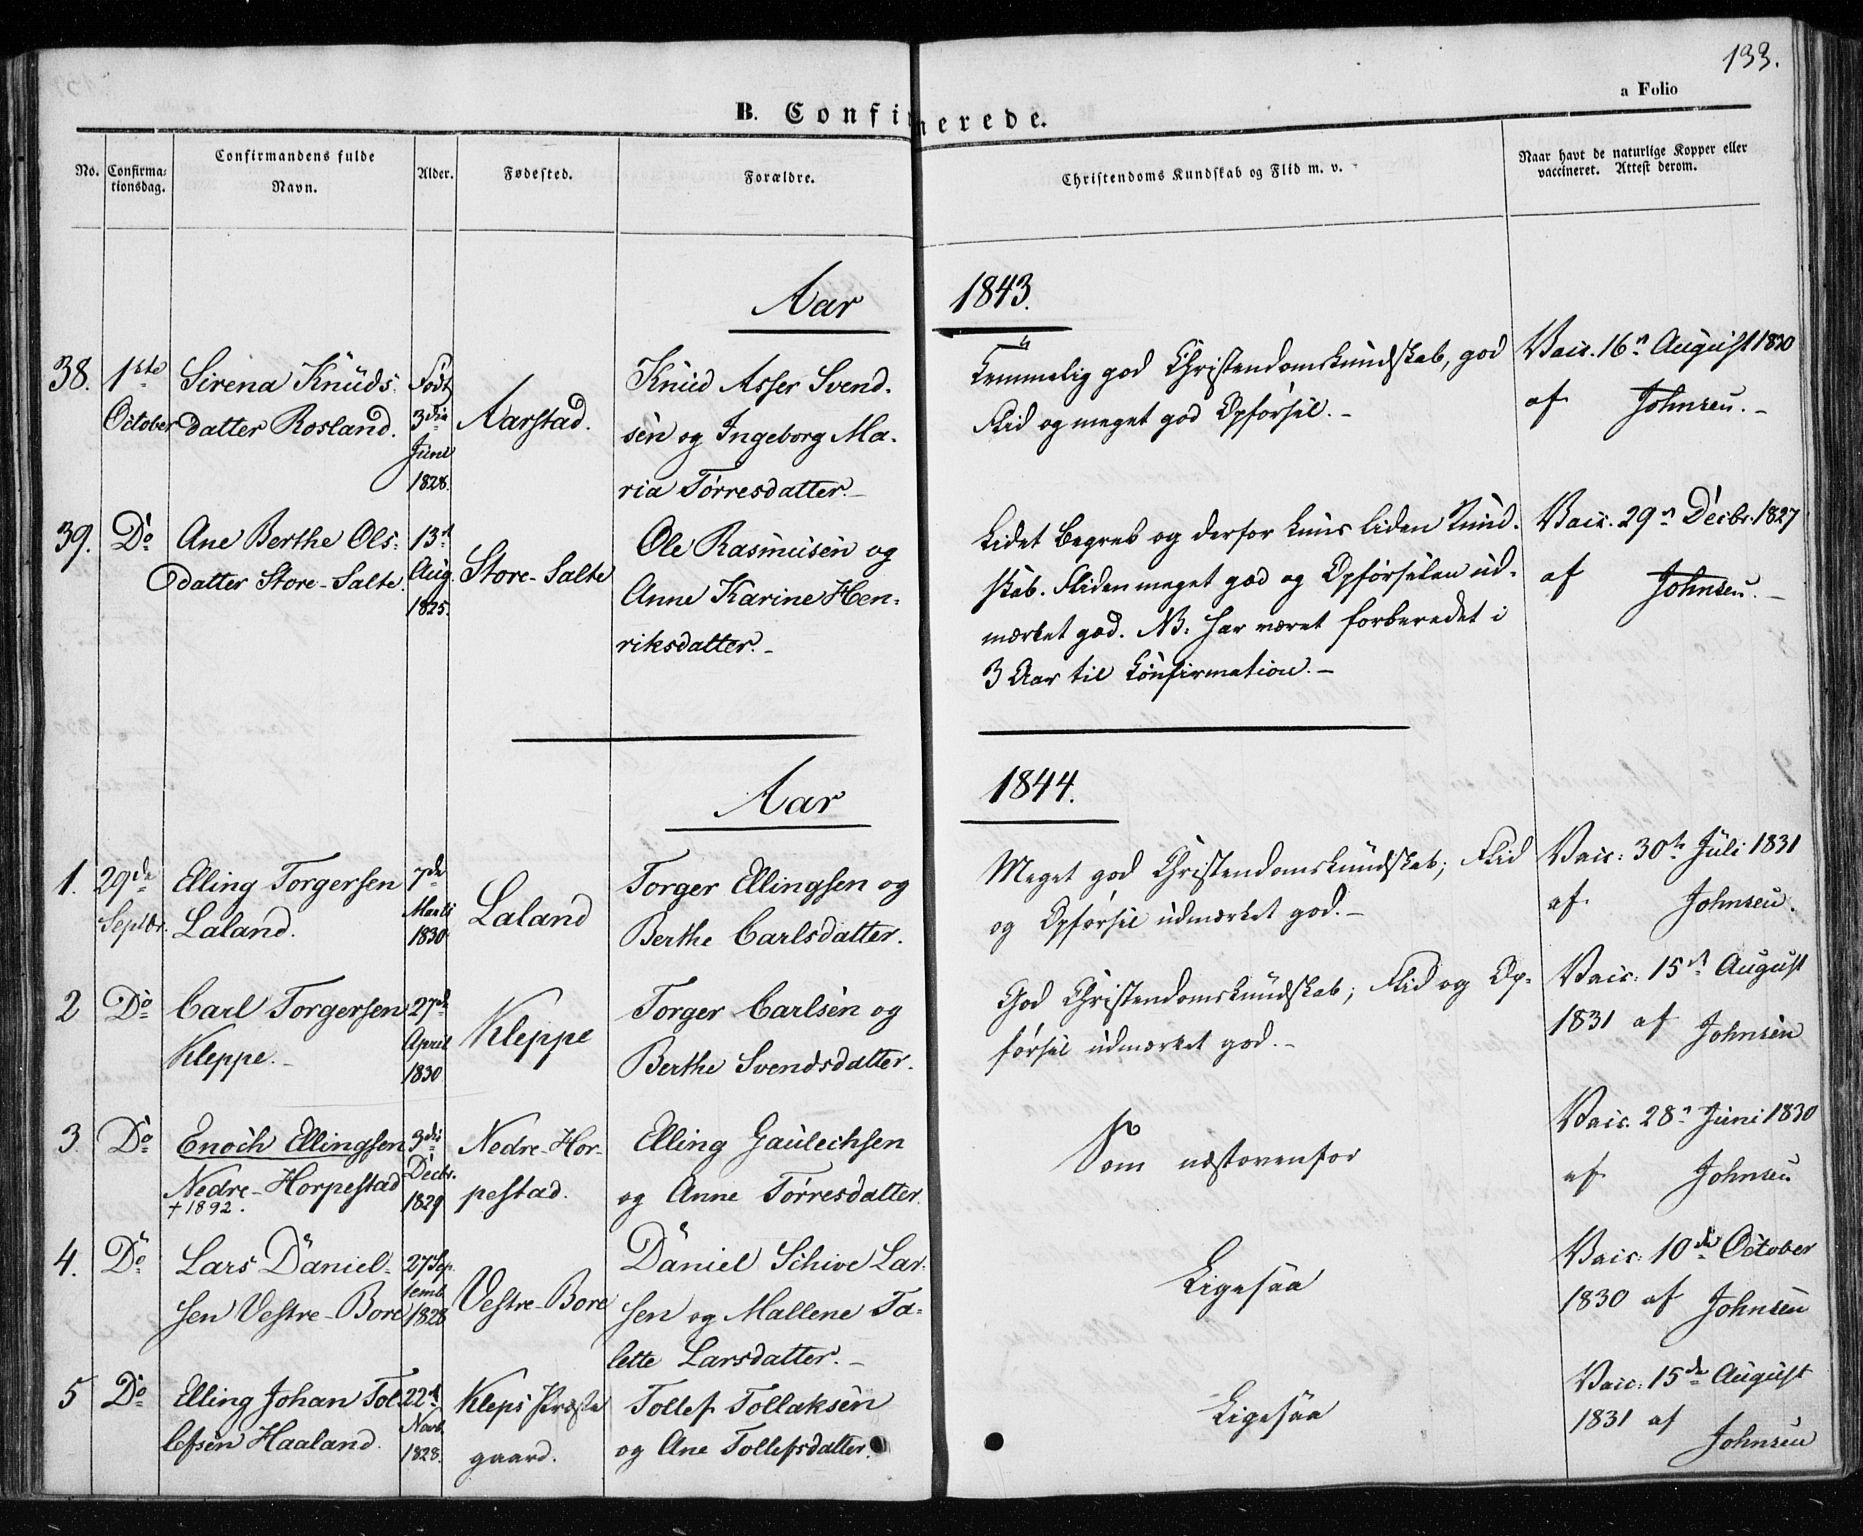 133.
a Folio
B. Confirmerede.
No.
Confirma-
tionsdag.
Confirmandens fulde
Navn.
Alder.
Fødested.
Forældre.
Christendoms Kundskab og Flid m. v.
Naar havt de naturlige Kopper eller
vaccineret. Attest derom.
Aar 1843.
38.
1ste
October
Sirena Knuds-
datter Rosland.
Født
3die
Juni
1828.
Aarstad.
Knud Asser Svend-
sen og Ingeborg Ma-
ria Tørresdatter.-
Temmelig god Christendomskundskab, god
Flid og meget god Opførsel.-
Vacc. 16n August 1830
af Johnsen.-
39.
Do
Ane Berthe Ols-
datter Store-Salte.
13d
Aug.
1825.
Store-Salte
Ole Rasmusen og
Anne Karine Hen-
riksdatter.-
Lidet Begreb og derfor kuns liden Kund-
skab. Fliden meget god og Opførselen ud-
mærket god. NB: har været forberedet i
3 Aar til Confirmation.-
Vacc. 29n Decbr. 1827
af Johnsen.-
Aar 1844.
1.
29de
Septbr.
Elling Torgersen
Laland.
7de
Marti
1830
Laland
Torger Ellingsen og
Berthe Carlsdatter.
Meget god Christendomskundskab; Flid
og Opførsel udmærket god.-
Vacc: 30te Juli 1831
af Johnsen.
2
Do
Carl Torgersen
Kleppe.-
27de
April
1830
Kleppe
Torger Carlsen og
Berthe Svendsdatter.
God Christendomskundskab; Flid og Op-
førsel udmærket god.-
Vacc: 15de August
1831 af Johnsen
3.
Do
Enoch Ellingsen
Nedre-Horpestad
+ 1892.
3die
Decbr.
1829
Nedre-Hor-
pestad.
Elling Gautechsen
og Anne Tørresdatter.
Som næstovenfor
Vacc. 28n Juni 1830
af Johnsen
4.
Do
Lars Daniel-
sen Vestre-Bore
27 Sep-
temb.
1828
Vestre-Bore
Daniel Schive Lar-
sen og Mallene Ta-
lette Larsdatter.-
Ligesaa
Vacc: 10de October
1830 af Johnsen
5
Do
Elling Johan Tol-
lefsen Haaland.
22d
Novb.
1828.
Kleps Præste
gaard.
Tollef Tollaksen
og Ane Tollefsdatter.
Ligesaa
Vacc: 15de August
1831 af
Johnsen